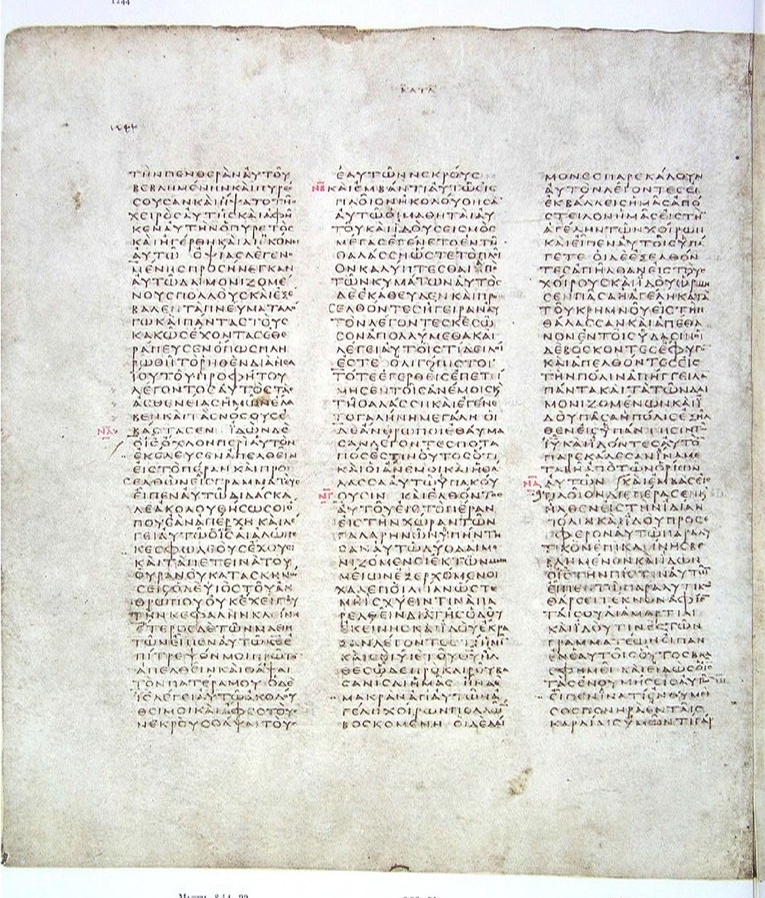 ΚΑΤΑ
ΤΗΝΠΕΝΘΕΡΑΝΑΥΤΟΥ
ΒΕΒΛΗΜΕΝΗΝΚΑΙΠΥΡΕ
ϹΟΥϹΑΝΚΑΙΗΨΑΤΟΤΗϹ
ΧΕΙΡΟϹΑΥΤΗϹΚΑΙΑΦΗ
ΚΕΝΑΥΤΗΝΟΠΥΡΕΤΟϹ
ΚΑΙΗΓΕΡΘΗΚΑΙΔΙΗΚΟΝΕΙ
ΑΥΤΩ ΟΨΙΑϹΔΕΓΕΝΟ
ΜΕΝΗϹΠΡΟϹΗΝΕΓΚΑΝ
ΑΥΤΩΔΑΙΜΟΝΙΖΟΜΕ
ΝΟΥϹΠΟΛΛΟΥϹΚΑΙΕΞΕ
ΒΑΛΕΝΤΑΠΝΕΥΜΑΤΑΛΟ
ΓΩΚΑΙΠΑΝΤΑϹΤΟΥϹ
ΚΑΚΩϹΕΧΟΝΤΑϹΕΘΕ
ΡΑΠΕΥϹΕΝΟΠΩϹΠΛΗ
ΡΩΘΗΤΟΡΗΘΕΝΔΙΑΗϹΑ
ΙΟΥΤΟΥΠΡΟΦΗΤΟΥ
ΛΕΓΟΝΤΟϹΑΥΤΟϹΤΑϹ
ΑϹΘΕΝΕΙΑϹΗΜΩΝΕΛΑ
ΒΕΝΚΑΙΤΑϹΝΟϹΟΥϹΕ
ΝΑ ΒΑϹΤΑϹΕΝ ΙΔΩΝΔΕΟ
ΙϹΟΧΛΟΝΠΕΡΙΑΥΤΟΝ
ΕΚΕΛΕΥϹΕΝΑΠΕΛΘΕΙΝ
ΕΙϹΤΟΠΕΡΑΝΚΑΙΠΡΟϹ
ΕΛΘΩΝΕΙϹΓΡΑΜΜΑΤΕΥϹ
ΕΙΠΕΝΑΥΤΩΔΙΔΑϹΚΑ
ΛΕΑΚΟΛΟΥΘΗϹΩϹΟΙΟ
ΠΟΥΕΑΝΑΠΕΡΧΗΚΑΙΛΕ
ΓΕΙΑΥΤΩΟΙϹΑΙΑΛΩΠΕ
ΚΕϹΦΩΛΕΟΥϹΕΧΟΥϹΙ
ΚΑΙΤΑΠΕΤΕΙΝΑΤΟΥ
ΟΥΡΑΝΟΥΚΑΤΑϹΚΗΝΩ
ϹΕΙϹΟΔΕΥΙΟϹΤΟΥΑΝ
ΘΡΩΠΟΥΟΥΚΕΧΕΙΠΟΥ
ΤΗΝΚΕΦΑΛΗΝΚΛΕΙΝΗ
ΕΤΕΡΟϹΔΕΤΩΝΜΑΘΗ
ΤΩΝΕΙΠΕΝΑΥΤΩΚΕΕ
ΠΙΤΡΕΨΟΝΜΟΙΠΡΩΤΟ
ΑΠΕΛΘΕΙΝΚΑΙΘΑΨΑΙ
ΤΟΝΠΑΤΕΡΑΜΟΥ ΟΔΕ
ΙϹΛΕΓΕΙΑΥΤΩΑΚΟΛΟΥ
ΘΕΙΜΟΙΚΑΙΑΦΕϹΤΟΥϹ
ΝΕΚΡΟΥϹΘΑΨΑΙΤΟΥϹ
ΕΑΥΤΩΝΝΕΚΡΟΥϹ
ΝΒ ΚΑΙΕΜΒΑΝΤΙΑΥΤΩΕΙϹ
ΠΛΟΙΟΝΗΚΟΛΟΥΘΗϹΑ
ΑΥΤΩΟΙΜΑΘΗΤΑΙΑΥ
ΤΟΥΚΑΙΙΔΟΥϹΕΙϹΜΟϹ
ΜΕΓΑϹΕΓΕΝΕΤΟΕΝΤΗ
ΘΑΛΑϹϹΗΩϹΤΕΤΟΠΛΟΙ
ΟΝΚΑΛΥΠΤΕϹΘΑΙΥΠΟ
ΤΩΝΚΥΜΑΤΩΝΑΥΤΟϹ
ΔΕΕΚΑΘΕΥΔΕΝΚΑΙΠΡΟϹ
ΕΛΘΟΝΤΕϹΗΓΕΙΡΑΝΑΥ
ΤΟΝΛΕΓΟΝΤΕϹΚΕϹΩ
ϹΟΝΑΠΟΛΛΥΜΕΘΑΚΑΙ
ΛΕΓΕΙΑΥΤΟΙϹΤΙΔΕΙΛΟΙ
ΕϹΤΕ ΟΛΙΓΟΠΙϹΤΟΙ
ΤΟΤΕΕΓΕΡΘΕΙϹΕΠΕΤΙ
ΜΗϹΕΝΤΟΙϹΑΝΕΜΟΙϹΚ
ΤΗΘΑΛΑϹϹΗΚΑΙΕΓΕΝΕ
ΤΟΓΑΛΗΝΗΜΕΓΑΛΗ ΟΙ
ΔΕΑΝΘΡΩΠΟΙΕΘΑΥΜΑ
ϹΑΝΛΕΓΟΝΤΕϹΠΟΤΑ
ΠΟϹΕϹΤΙΝΟΥΤΟϹΟΤΙ
ΚΑΙΟΙΑΝΕΜΟΙΚΑΙΗΘΑ
ΛΑϹϹΑΑΥΤΩΥΠΑΚΟΥ
ΝΓ ΟΥϹΙΝ ΚΑΙΕΛΘΟΝΤΟϹ
ΑΥΤΟΥΕΙϹΤΟΠΕΡΑΝ
ΕΙϹΤΗΝΧΩΡΑΝΤΩΝ
ΓΑΔΑΡΗΝΩΝΥΠΗΝΤΗ
ϹΑΝΑΥΤΩΔΥΟΔΑΙΜΟ
ΝΙΖΟΜΕΝΟΙΕΚΤΩΝΜΝΗ
ΜΕΙΩΝΕΞΕΡΧΟΜΕΝΟΙ
ΧΑΛΕΠΟΙΛΙΑΝΩϹΤΕ
ΜΗΙϹΧΥΕΙΝΤΙΝΑΠΑ
ΡΕΛΘΕΙΝΔΙΑΤΗϹΟΔΟΥ
ΕΚΕΙΝΗϹΚΑΙΙΔΟΥΕΚΡΑ
ΞΑΝΛΕΓΟΝΤΕϹΤΙΗΜΙ
ΚΑΙϹΟΙΥΙΕΤΟΥΘΥΗΛ
ΘΕϹΩΔΕΠΡΟΚΑΙΡΟΥΒΑ
ϹΑΝΙϹΑΙΗΜΑϹ ΗΝΔΕ
ΜΑΚΡΑΝΑΠΑΥΤΩΝΑ
ΓΕΛΗΧΟΙΡΩΝΠΟΛΛΩ
ΒΟϹΚΟΜΕΝΗ ΟΙΔΕΔΑΙ
ΜΟΝΕϹΠΑΡΕΚΑΛΟΥΝ
ΑΥΤΟΝΛΕΓΟΝΤΕϹΕΙ
ΕΚΒΑΛΛΕΙϹΗΜΑϹΑΠΟ
ϹΤΕΙΛΟΝΗΜΑϹΕΙϹΤΗ
ΑΓΕΛΗΝΤΩΝΧΟΙΡΩΝ
ΚΑΙΕΙΠΕΝΑΥΤΟΙϹΥΠΑ
ΓΕΤΕ ΟΙΔΕΕΞΕΛΘΟΝ
ΤΕϹΑΠΗΛΘΑΝΕΙϹΤΟΥϹ
ΧΟΙΡΟΥϹΚΑΙΙΔΟΥΩΡΜΗ
ϹΕΝΠΑϹΑΗΑΓΕΛΗΚΑΤΑ
ΤΟΥΚΡΗΜΝΟΥΕΙϹΤΗΝ
ΘΑΛΑϹϹΑΝΚΑΙΑΠΕΘΑ
ΝΟΝΕΝΤΟΙϹΥΔΑϹΙΝΟΙ
ΔΕΒΟϹΚΟΝΤΕϹΕΦΥΓΟ
ΚΑΙΑΠΕΛΘΟΝΤΕϹΕΙϹ
ΤΗΝΠΟΛΙΝΑΠΗΓΓΕΙΛΑ
ΠΑΝΤΑΚΑΙΤΑΤΩΝΔΑΙ
ΜΟΝΙΖΟΜΕΝΩΝΚΑΙΙ
ΔΟΥΠΑϹΑΗΠΟΛΙϹΕΞΗΛ
ΘΕΝΕΙϹΥΠΑΝΤΗϹΙΝΤΩ
ΙΥΚΑΙΙΔΟΝΤΕϹΑΥΤΟ
ΠΑΡΕΚΑΛΕϹΑΝΙΝΑΜΕ
ΤΑΒΗΑΠΟΤΩΝΟΡΙΩΝ
ΝΔ ΑΥΤΩΝ ΚΑΙΕΜΒΑϹΕΙϹ
ΠΛΟΙΟΝΔΙΕΠΕΡΑϹΕΝΚ
ΗΛΘΕΝΕΙϹΤΗΝΙΔΙΑΝ
ΠΟΛΙΝΚΑΙΙΔΟΥΠΡΟϹΕ
ΦΕΡΟΝΑΥΤΩΠΑΡΑΛΥ
ΤΙΚΟΝΕΠΙΚΛΙΝΗϹΒΕ
ΒΛΗΜΕΝΟΝΚΑΙΙΔΩΝ
ΟΙϹΤΗΝΠΙϹΤΙΝΑΥΤΩ
ΕΙΠΕΝΤΩΠΑΡΑΛΥΤΙΚΩ
ΘΑΡϹΕΙΤΕΚΝΟΝΑΦΙΕ
ΤΑΙϹΟΥΑΙΑΜΑΡΤΙΑΙ
ΚΑΙΙΔΟΥΤΙΝΕϹΤΩΝ
ΓΡΑΜΜΑΤΕΩΝΕΙΠΑΝ
ΕΝΕΑΥΤΟΙϹΟΥΤΟϹΒΛΑ
ϹΦΗΜΕΙ ΚΑΙΕΙΔΩϹΟΙϹ
ΤΑϹΕΝΘΥΜΗϹΕΙϹΑΥΤΩ
ΕΙΠΕΝΙΝΑΤΙΕΝΘΥΜΕΙ
ϹΘΕΠΟΝΗΡΑΕΝΤΑΙϹ
ΚΑΡΔΙΑΙϹΥΜΩΝΤΙΓΑΡ